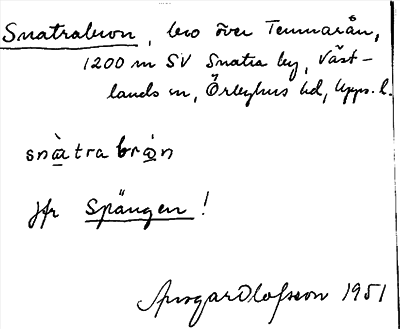 Snatrabron, bro över Temnarån,
1200 m SV Snatra by, Väst-
lands sn, Örbyhus hd, Upps. l.
snàtrabrón
jfr Spången!
Ansgar Olofsson 1951